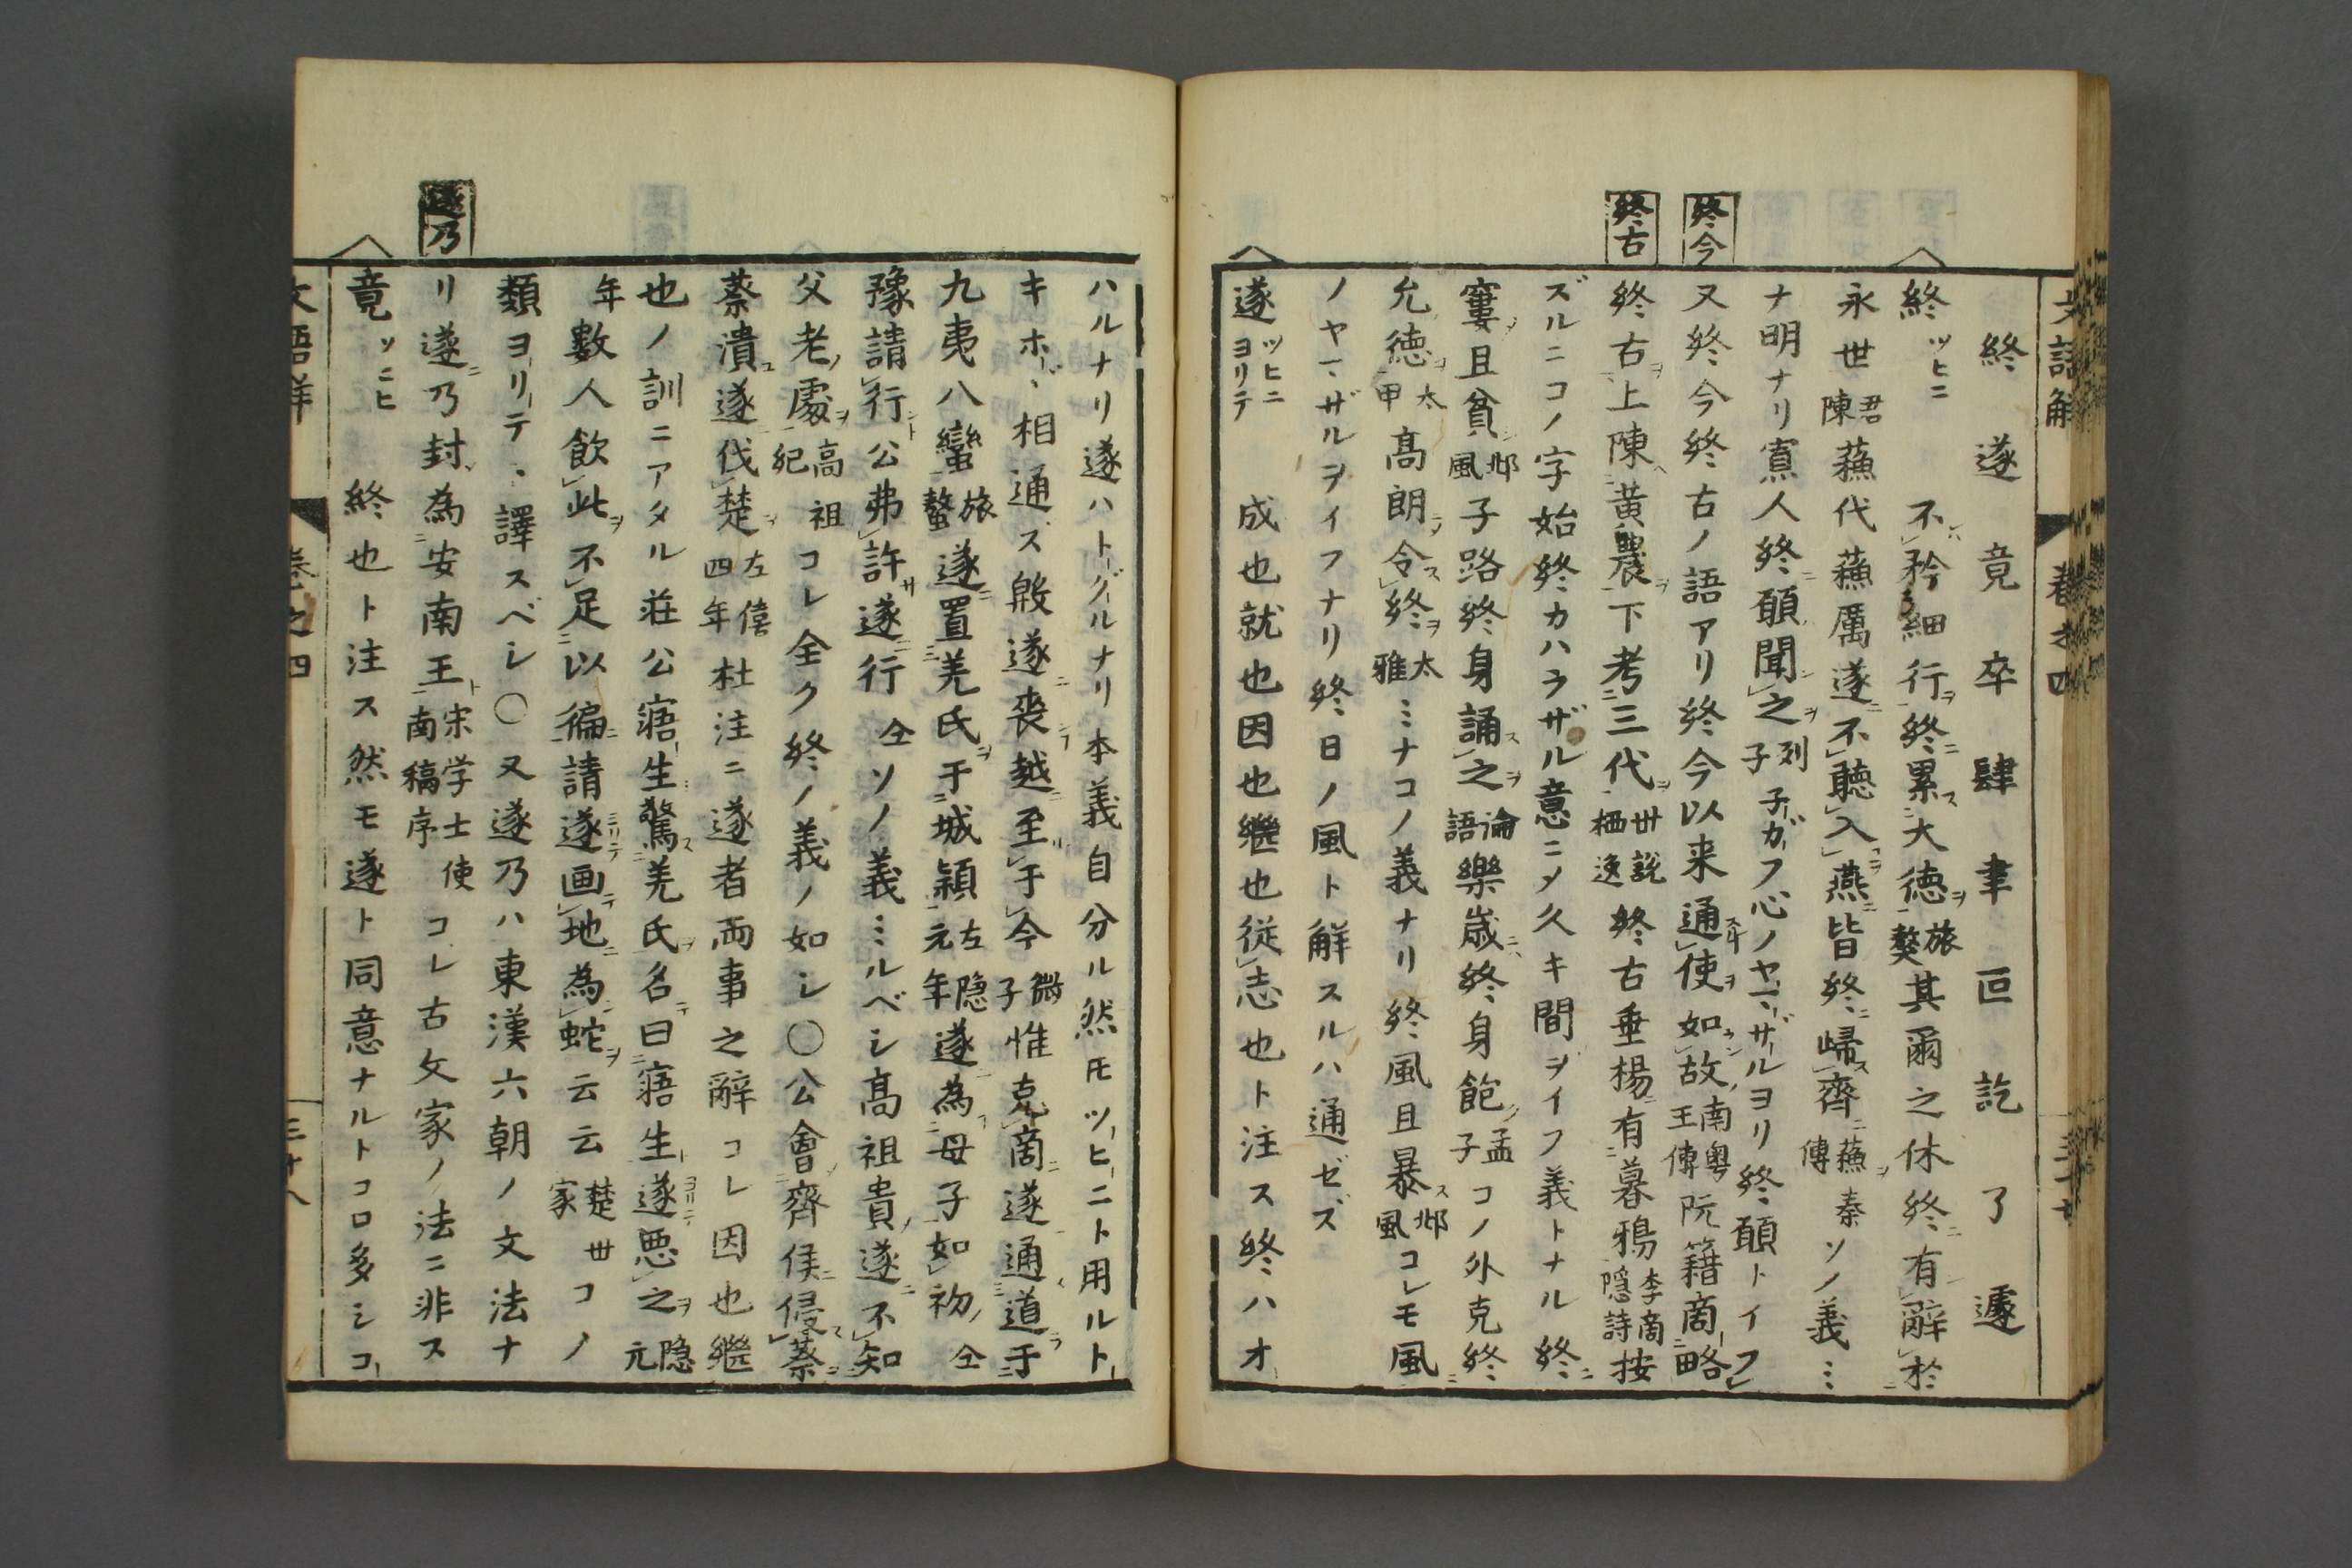 終遂竟卒肆聿叵訖了遽
終ツヒニ 不矜細行終累大徳旅獒其爾之休終有辭於
永世君陳蘓代蘓厲遂不聽入燕皆終歸齊蘓秦傳ソノ義ミ
ナ明ナリ寡人終願聞之列子子ガフ心ノヤマザルヨリ終願トイフ
終今
又終今終古ノ語アリ終今以来通使如故南粤王傳阮籍啇略
終古
終古上陳黄農下考三代世説栖逸終古垂楊有暮鴉李啇隠詩按
ズルニコノ字始終カハラザル意ニメ久キ間ヲイフ義トナル終
窶且貧邶風子路終身誦之論語樂歳終身飽孟子コノ外克終
允徳太甲髙朗令終太雅ミナコノ義ナリ終風且暴邶風コレモ風
ノヤマザルヲイフナリ終日ノ風ト解スルハ通ゼズ
遂ツヒニヨリテ 成也就也因也繼也従志也ト注ス終ハオ
ハルナリ遂ハトグルナリ本義自分ル然𪜈ツヒニト用ルト
キホヾ相通ス殷遂喪越至于今微子惟克啇遂通道于
九夷八蠻旅獒遂置羌氏于城穎左隠元年遂為母子如初仝
豫請行公弗許遂行仝ソノ義ミルベシ髙祖貴遂不知
父老處高祖紀コレ全ク終ノ義ノ如シ〇公會齊侯侵蔡
蔡潰遂伐楚左僖四年杜注ニ遂者両事之辭コレ因也繼
也ノ訓ニアタル荘公寤生驚羌氏名曰寤生遂悪之隠元
年數人飲此不足以徧請遂画地為蛇云云楚世家コノ
類ヨリテヽ譯スベシ〇又遂乃ハ東漢六朝ノ文法ナ
遂乃
リ遂乃封為安南王宋学士使南稿序コレ古文家ノ法ニ非ス
竟ツ井ニヒ 終也ト注ス然モ遂ト同意ナルトコロ多シコ
文語解 巻之四 三十八